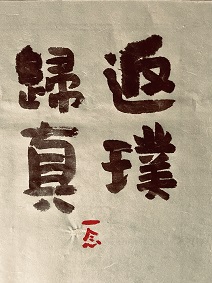 返璞
歸真
一念